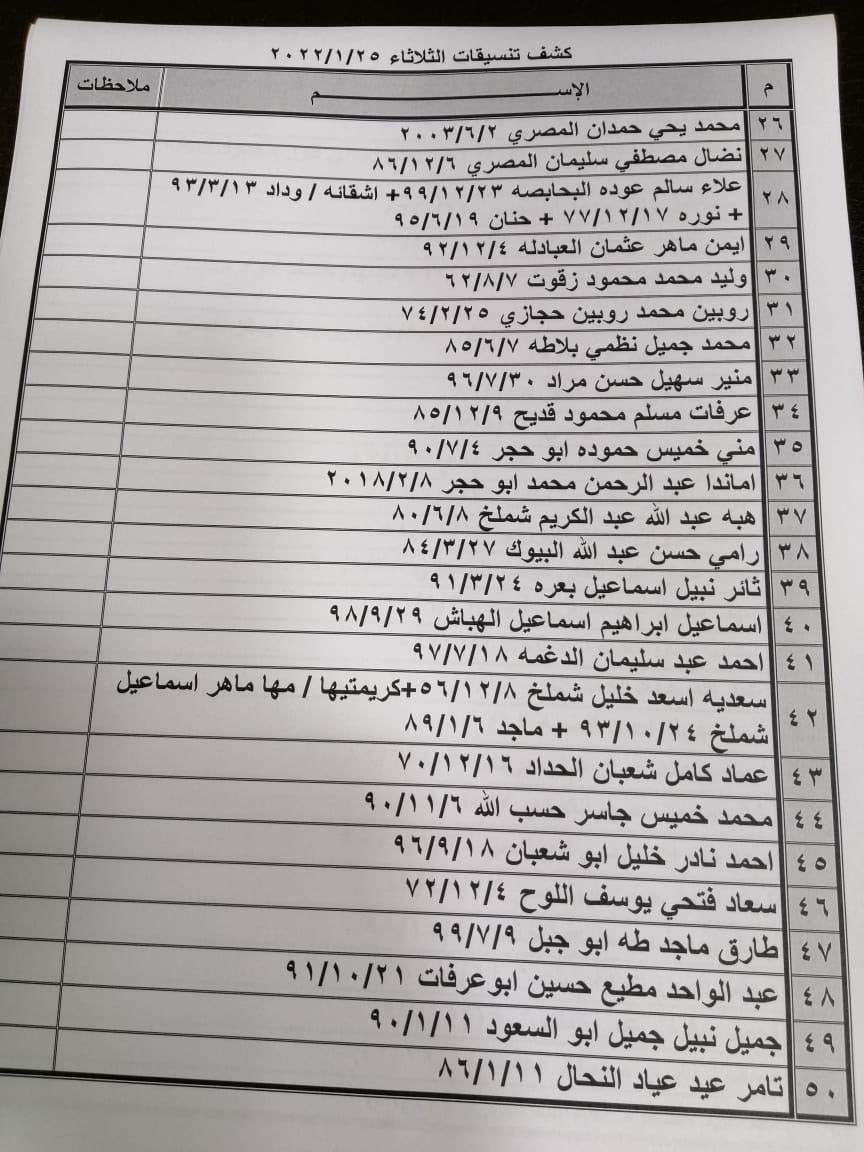 كشف تنسيقات الثلاثاء ٢٠٢٢/١/٢٥
م الإســـــــــــــــــــم ملاحظات
٢٦ محمد يحي حمدان المصري ٢٠٠٣/٦/٢
٢٧ نضال مصطفي سليمان المصري ٨٦/١٢/٦
٢٨ علاء سالم عوده البحابصه ٩٩/١٢/٢٣+ اشقائه / وداد ٩٣/٣/١٣
+ نوره ٧٧/١٢/١٧ + حنان ٩٥/٦/١٩
٢٩ ايمن ماهر عثمان العبادله ٩٢/١٢/٤
٣٠ وليد محمد محمود زقوت ٦٢/٨/٧
٣١ روبين محمد روبين حجازي ٧٤/٢/٢٥
٣٢ محمد جميل نظمي بلاطه ٨٥/٦/٧
٣٣ منير سهيل حسن مراد ٩٦/٧/٣٠
٣٤ عرفات مسلم محمود قديح ٨٥/١٢/٩
٣٥ مني خميس حموده ابو حجر ٩٠/٧/٤
٣٦ اماندا عبد الرحمن محمد ابو حجر ٢٠١٨/٢/٨
٣٧ هبه عبد الله عبد الكريم شملخ ٨٠/٦/٨
٣٨ رامي حسن عبد الله البيوك ٨٤/٣/٢٧
٣٩ ثائر نبيل اسماعيل بعره ٩١/٣/٢٤
٤٠ اسماعيل ابراهيم اسماعيل الهباش ٩٨/٩/٢٩
٤١ احمد عبد سليمان الدغمه ٩٧/٧/١٨
٤٢ سعديه اسعد خليل شملخ ٥٦/١٢/٨+كريمتيها / مها ماهر اسماعيل
شملخ ٩٣/١٠/٢٤ + ماجد ٨٩/١/٦
٤٣ عماد كامل شعبان الحداد ٧٠/١٢/١٦
٤٤ محمد خميس جاسر حسب الله ٩٠/١١/٦
٤٥ احمد نادر خليل ابو شعبان ٩٦/٩/١٨
٤٦ سعاد فتحي يوسف اللوح ٧٢/١٢/٤
٤٧ طارق ماجد طه ابو جبل ٩٩/٧/٩
٤٨ عبد الواحد مطيع حسين ابوعرفات ٩١/١٠/٢١
٤٩ جميل نبيل جميل ابو السعود ٩٠/١/١١
٥٠ تامر عيد عياد النحال ٨٦/١/١١